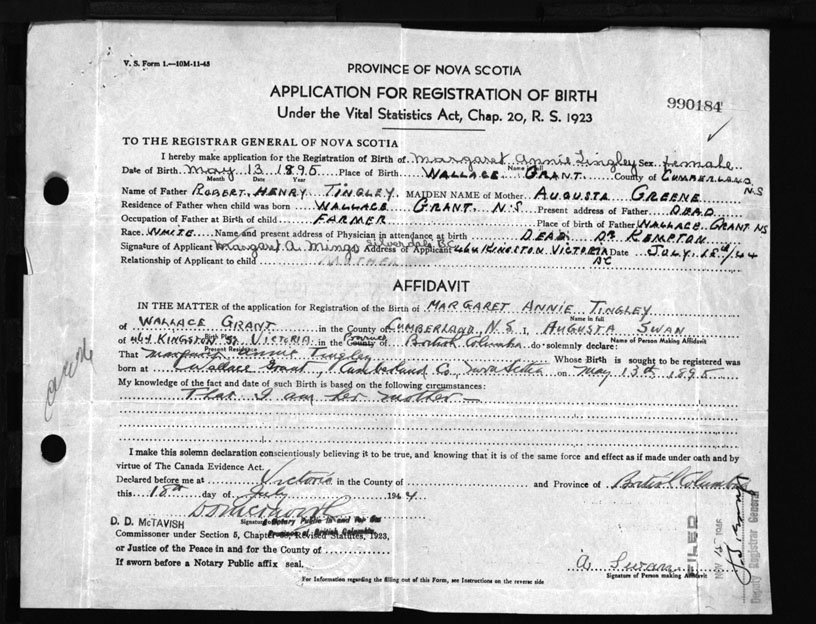 V. S. Form 1.—10M-11-43
PROVINCE OF NOVA SCOTIA
APPLICATION FOR REGISTRATION OF BIRTH
Under the Vital Statistics Act, Chap. 20, R. S. 1923
990184
TO THE REGISTRAR GENERAL OF NOVA SCOTIA
I hereby make application for the Registration of Birth of Margaret Annie Tingley Sex Female
Name in full
Date of Birth May 13 1895 Place of Birth WALLACE GRANT County of CUMBERLAND N.S
Month Date Year
Name of Father ROBERT HENRY TINGLEY MAIDEN NAME of Mother AUGUSTA GREENE
Residence of Father when child was born WALLACE GRANT N.S. Present address of Father DEAD
Occupation of Father at Birth of child FARMER Place of birth of Father WALLACE GRANT NS
Race WHITE Name and present address of Physician in attendance at birth DEAD DR KEMPTON
Signature of Applicant Margaret A. Mingo Silverdale BC Address of Applicant 464 KINGSTON VICTORIA BC Date JULY 12th/44
Relationship of Applicant to child MOTHER
AFFIDAVIT
IN THE MATTER of the application for Registration of the Birth of MARGARET ANNIE TINGLEY
Name in full
of WALLACE GRANT in the County of CUMBERLAND N.S I, AUGUSTA SWAN
Name of Person Making Affidavit
of 464 KINGSTON ST VICTORIA in the Province County of British Columbia do solemnly declare:
Present Residence
That Margaret Annie Tingley Whose Birth is sought to be registered was
born at Wallace Grant, Cumberland Co, Nova Scotia on May 13th, 1895
My knowledge of the fact and date of such Birth is based on the following circumstances:
That I am her mother
I make this solemn declaration conscientiously believing it to be true, and knowing that it is of the same force and effect as if made under oath and by
virtue of The Canada Evidence Act.
Declared before me at Victoria in the County of and Province of British Columbia
this 18th day of July 1944
D. D. McTAVISH
Signature
A Notary Public in and for the
Province of British Columbia
Commissioner under Section 5, Chapter Revised Statutes, 1923,
or Justice of the Peace in and for the County of
If sworn before a Notary Public affix seal.
A Swan
Signature of Person making Affidavit
For Information regarding the filling out of this Form, see Instructions on the reverse side
FILED
NOV 15 1945
Deputy Registrar General